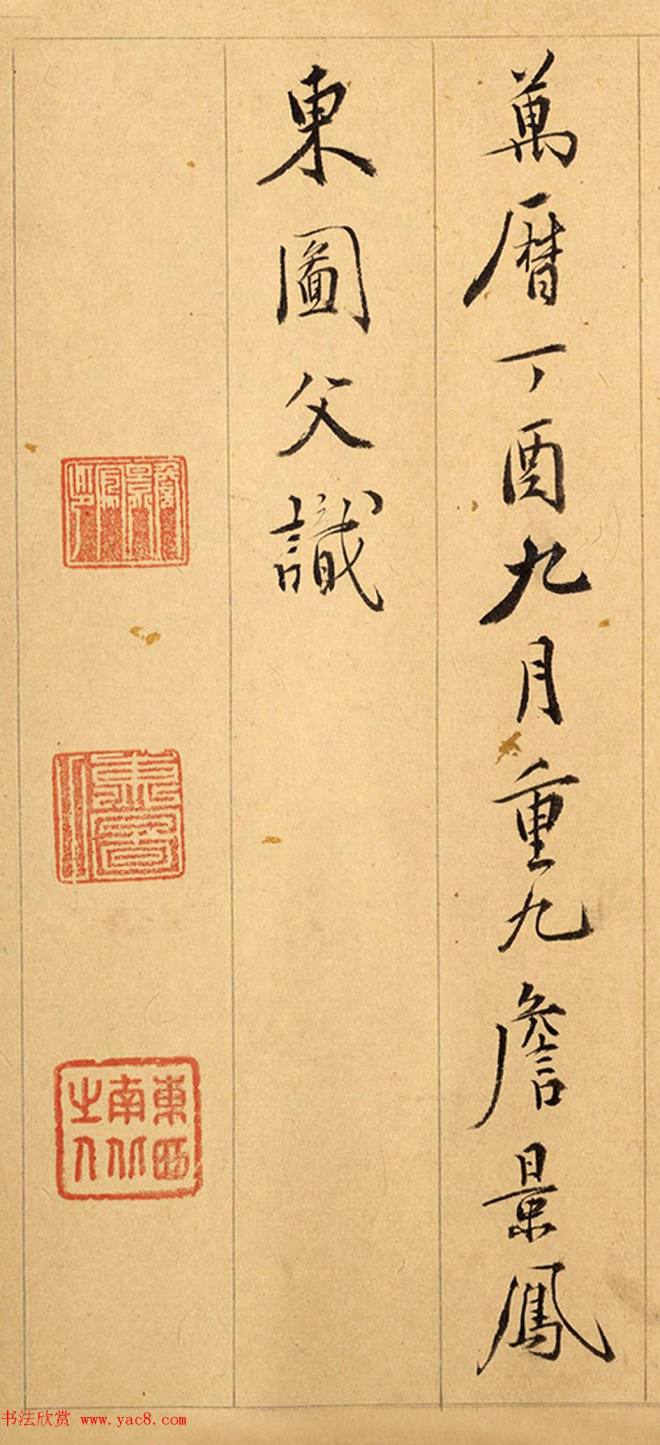 萬曆丁酉九月重九詹景鳳
東圖父識
詹景鳳印
東西
南北
之人
书法欣赏 www.yac8.com